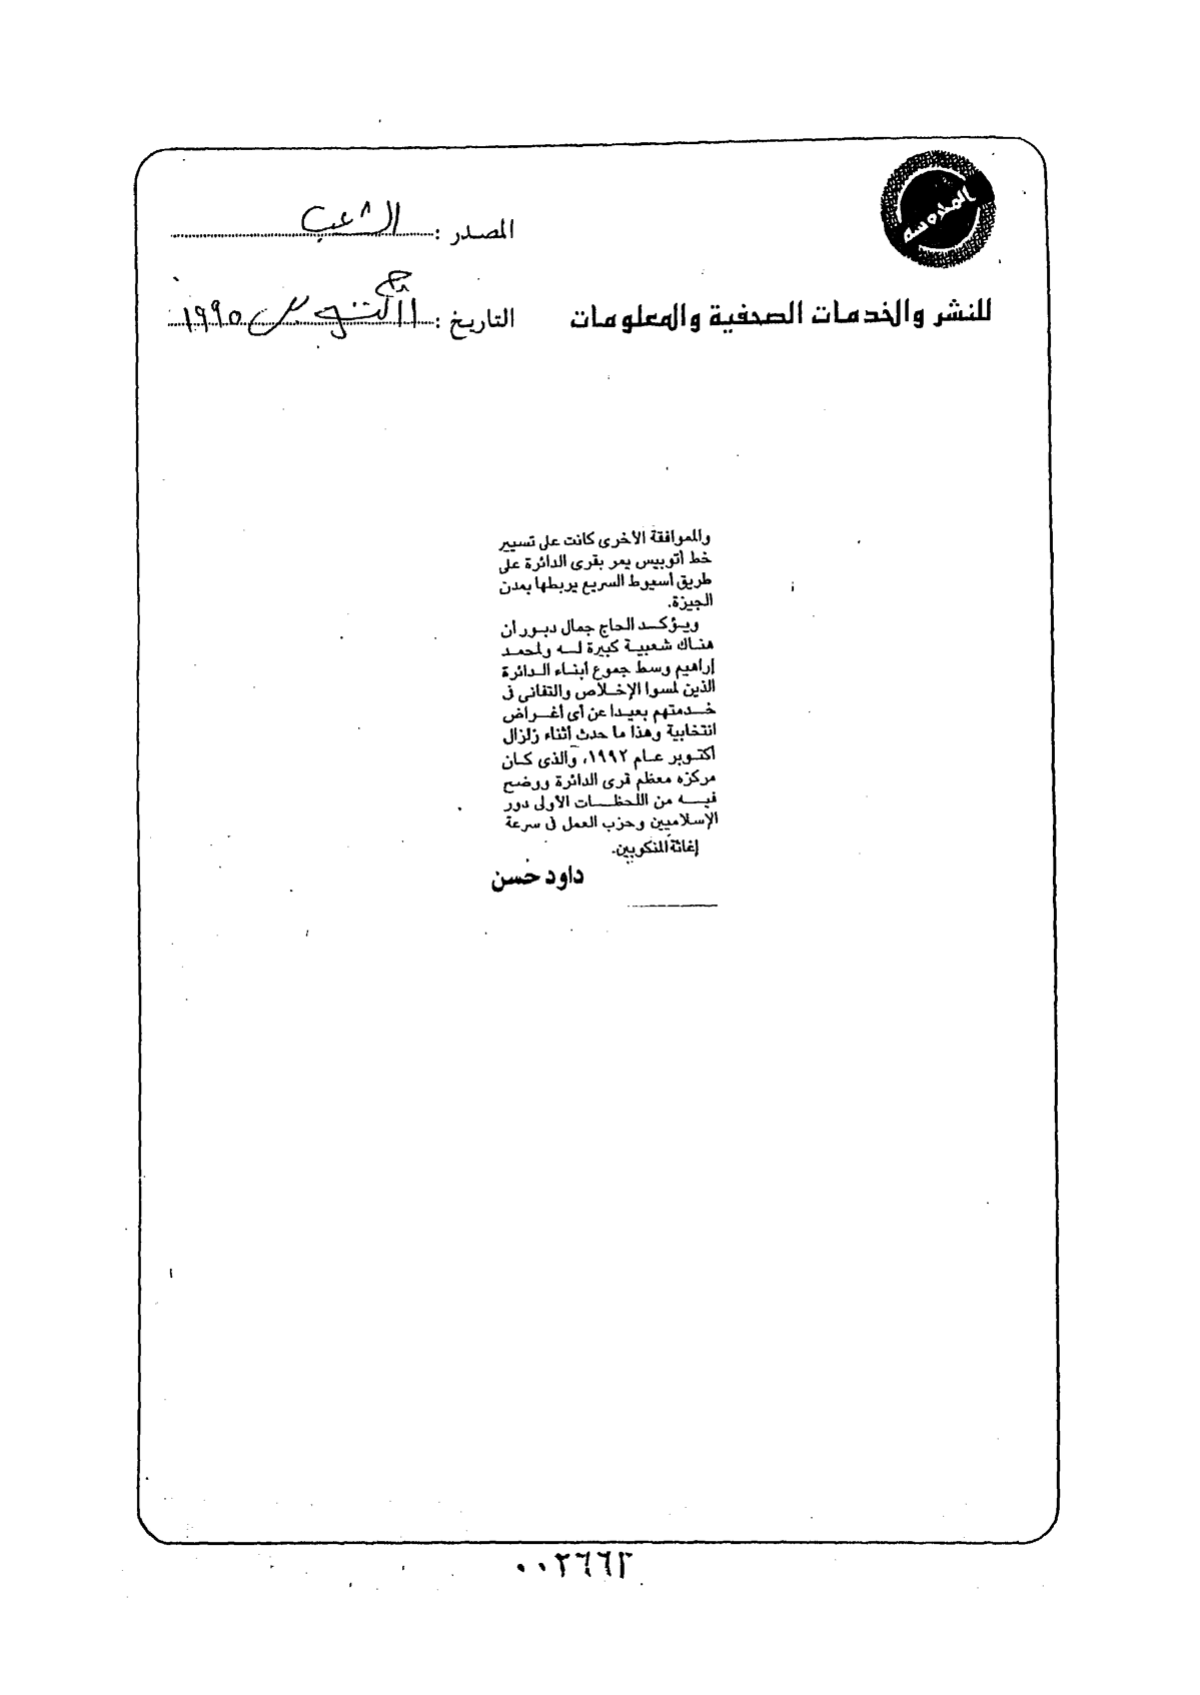 المحروسة
المصدر : الشعب
للنشر والخدمات الصحفية والمعلومات
التاريخ : ١١ أكتوبر ١٩٩٥
والموافقة الأخرى كانت على تسيير
خط أتوبيس يمر بقرى الدائرة على
طريق أسيوط السريع يربطها بمدن
الجيزة.
ويؤكد الحاج جمال دبور أن
هناك شعبية كبيرة له ولمحمد
إبراهيم وسط جموع أبناء الدائرة
الذين لمسوا الإخلاص والتفانى فى
خدمتهم بعيدا عن أى أغراض
انتخابية وهذا ما حدث أثناء زلزال
أكتوبر عام ١٩٩٢، والذى كان
مركزه معظم قرى الدائرة ووضح
فيه من اللحظات الأولى دور
الإسلاميين وحزب العمل فى سرعة
إغاثة المنكوبين.
داود حسن
٠٠٢٦٦٢